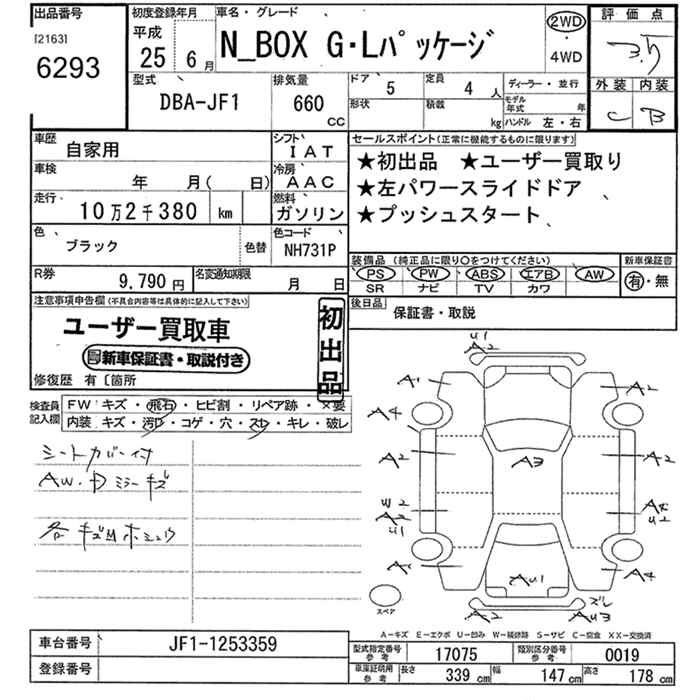 出品番号
[2163]
6293
初度登録年月
平成
25 6月
車名・グレード
N_BOX G・Lパッケージ
2WD
・
4WD
評価点
3.5
外装 内装
C B
型式
DBA-JF1
排気量
660
cc
ドア 5
定員 4 人
形状
積載 kg
ディーラー・並行
モデル年式 年
ハンドル 左・右
車歴 自家用
シフト IAT
冷房 AAC
車検 年 月( 日)
走行 10万2千380 km
燃料 ガソリン
色 ブラック
色替
色コード NH731P
R券 9,790円
名変通知期限 月 日
セールスポイント(正常に機能するものに限ります)
★初出品 ★ユーザー買取り
★左パワースライドドア
★プッシュスタート
装備品 (純正品に限り○をつけてください)
PS PW ABS エアB AW
SR ナビ TV カワ
新車保証書
有・無
後日品
保証書・取説
注意事項申告欄(不具合内容等は具体的に記入して下さい)
ユーザー買取車
新車保証書・取説付き
初出品
修復歴 有〔箇所
検査員記入欄
FW キズ・飛石・ヒビ割・リペア跡・X要
内装 キズ・汚れ・コゲ・穴・スレ・キレ・破レ
シートカバー付
AW・Dミラーキズ
各キズ凹ホシュウ
U1
A2
A1 A2
A4 A4
A2 A2
A3
W2
A2
U1
U2
A1 A4
AU1
A2
ズレ
AU3
スペア
A-キズ E-エクボ U-凹み W-補修跡 S-サビ C-腐食 XX-交換済
車台番号 JF1-1253359
登録番号
型式指定番号 参考 17075
類別区分番号 参考 0019
車庫証明用 参考 長さ 339cm 幅 147cm 高さ 178cm